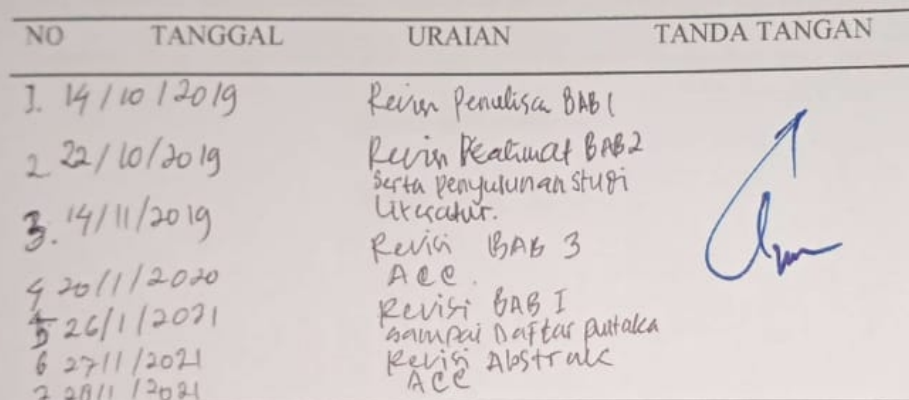 NO TANGGAL URAIAN TANDA TANGAN
1. 14/10/2019 Revisi Penulisan BAB 1
2. 22/10/2019 Revisi BAB 2
serta penyusunan studi
Literatur.
3. 14/11/2019 Revisi BAB 3
4 20/1/2020 ACC.
5 26/1/2021 Revisi BAB I
sampai Daftar pustaka
6 27/1/2021 Revisi Abstrak
7 28/1/2021 ACC